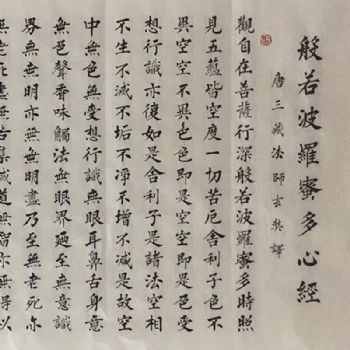 般若波羅蜜多心經
唐三藏法師玄奘譯
觀自在菩薩行深般若波羅蜜多時照
見五蘊皆空度一切苦厄舍利子色不
異空空不異色色即是空空即是色受
想行識亦復如是舍利子是諸法空相
不生不滅不垢不淨不增不減是故空
中無色無受想行識無眼耳鼻舌身意
無色聲香味觸法無眼界廼至無意識
界無無明亦無無明盡乃至無老死亦
無老死盡無苦集滅道無智亦無得以